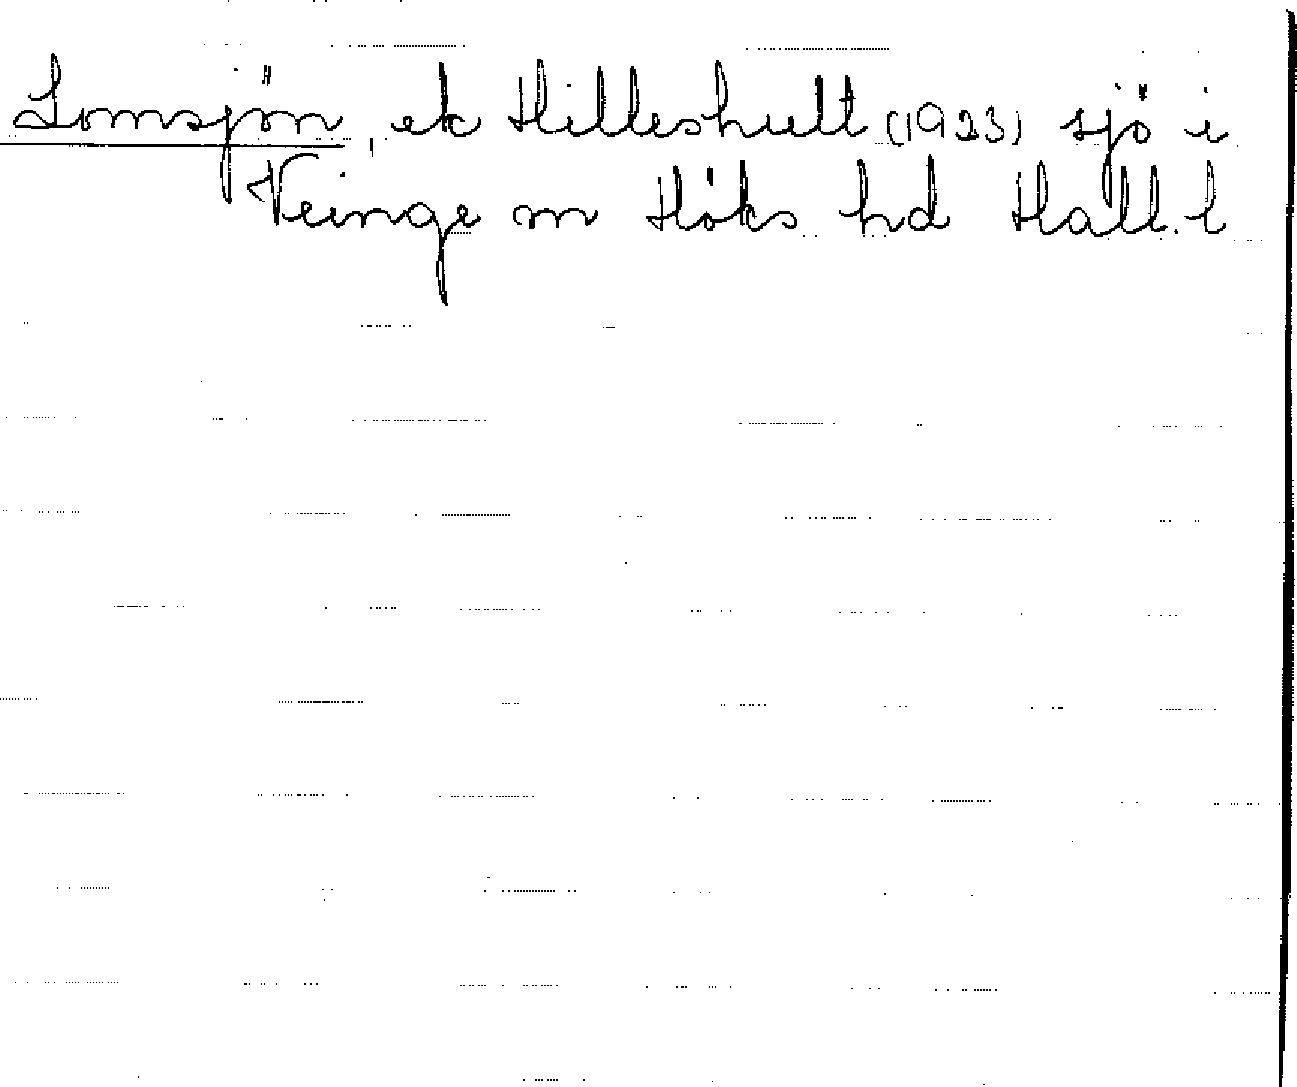 Lomsjön, ek Hilleshult (1923) sjö i
Veinge sn Höks hd Hall. l